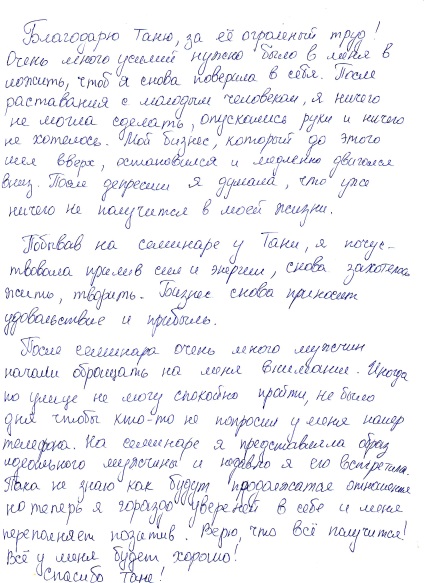 Благодарю Таню, за её огромный труд!
Очень много усилий нужно было в меня в
ложить, чтоб я снова поверила в себя. После
раставания с молодым человеком, я ничего
не могла сделать, опускались руки и ничего
не хотелось. Мой бизнес, который до этого
шел вверх, остановился и медленно двигался
вниз. После депрессии я думала, что уже
ничего не получится в моей жизни.
Побывав на семинаре у Тани, я почус-
твовала прилив сил и энергии, снова захотелось
жить, творить. Бизнес снова приносит
удовольствие и прибыль.
После семинара очень много мужчин
начали обращать на меня внимание. Иногда
по улице не могу спокойно пройти, не было
дня чтобы кто-то не попросил у меня номер
телефона. На семинаре я представила образ
идеального мужчины и недавно я его встретила.
Пока не знаю как будут продолжатся отношения
но теперь я гораздо уверенней в себе и меня
переполняет позитив. Верю, что всё получится!
Всё у меня будет хорошо!
Спасибо Тане!